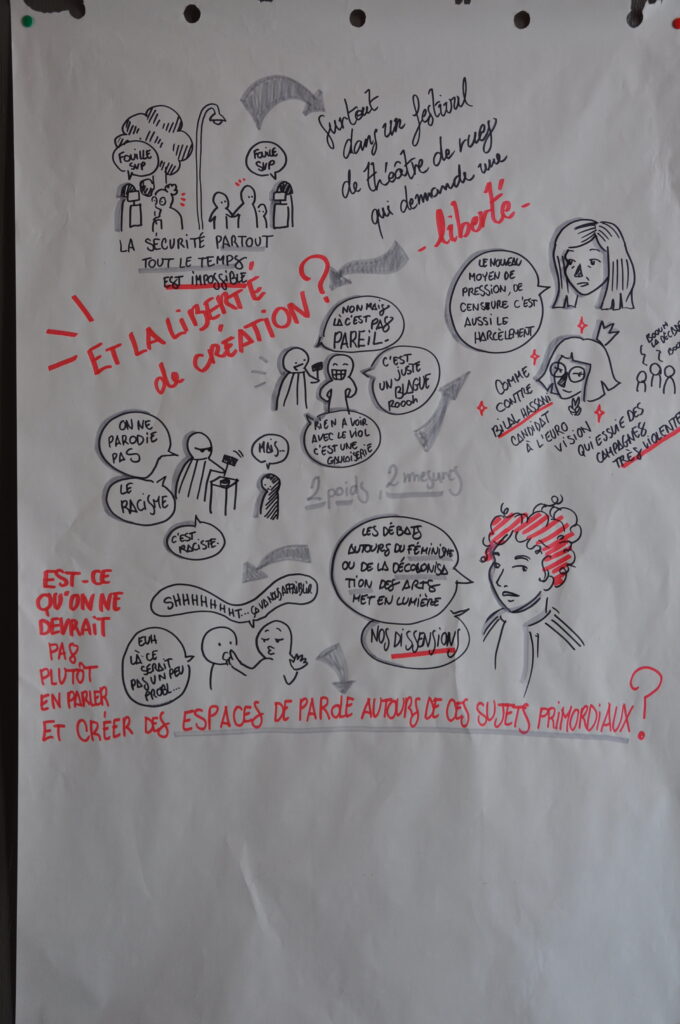 FOUILLE
SVP
FOUILLE
SVP
LA SÉCURITÉ PARTOUT
TOUT LE TEMPS
EST IMPOSSIBLE
Surtout
dans un festival
de théâtre de rues
qui demande une
- liberté -
ET LA LIBERTÉ
de CRÉATION ?
LE NOUVEAU
MOYEN DE
PRESSION, DE
CENSURE C'EST
AUSSI LE
HARCÈLEMENT
COMME
CONTRE
BILAL HASSANI
CANDIDAT
À L'EURO
VISION
QUI ESSUIE DES
CAMPAGNES
TRÈS VIOLENTES
BOOUH
NON MAIS
LÀ C'EST PAS
PAREIL-
C'EST
JUSTE
UN BLAGUE
ROOOH
RIEN A VOIR
AVEC LE VIOL
C'EST UNE
GAULOISERIE
ON NE
PARODIE
PAS
LE
RACISME
MAIS...
C'EST
RACISTE.
2 poids, 2 mesures
LES DÉBATS
AUTOURS DU FÉMINISME
OU DE LA DÉCOLONISA
TION DES ARTS
MET EN LUMIÈRE
NOS DISSENSIONS
SHHHHHHHT... ÇA VA NOUS AFFAIBLIR
EUH
LÀ CE
SERAIT
PAS UN PEU
PROBL...
EST-CE
QU'ON NE
DEVRAIT
PAS
PLUTÔT
EN PARLER
ET CRÉER DES ESPACES DE PAROLE AUTOURS DE CES SUJETS PRIMORDIAUX ?